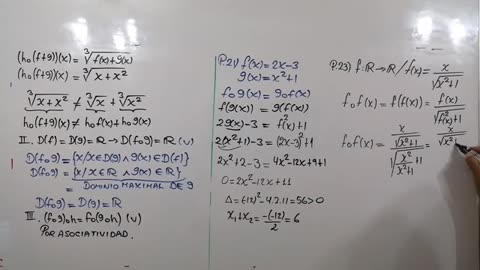 (h₀(f+g))(x) = ∛(f(x)+g(x))
(h₀(f+g))(x) = ∛(x+x²)
∛(x+x²) ≠ ∛x + ∛x²
h₀(f+g)(x) ≠ h₀f(x)+h₀g(x)
II. D(f) = D(g) = ℝ → D(f₀g) = ℝ (V)
D(f₀g) = {x/x∈D(g) ∧ g(x)∈D(f)}
D(f₀g) = {x/x∈ℝ ∧ g(x)∈ℝ}
= DOMINIO MAXIMAL DE g
D(f₀g) = D(g) = ℝ
III. (f₀g)₀h = f₀(g₀h) (V)
POR ASOCIATIVIDAD.
P.21) f(x) = 2x-3
g(x) = x²+1
f₀g(x) = g₀f(x)
f(g(x)) = g(f(x))
2g(x)-3 = f²(x)+1
2(x²+1)-3 = (2x-3)²+1
2x²+2-3 = 4x²-12x+9+1
0 = 2x²-12x+11
Δ = (-12)²-4.2.11 = 56 > 0
x₁+x₂ = -(-12)/2 = 6
P.23) f: ℝ → ℝ / f(x) = x/√(x²+1)
f₀f(x) = f(f(x)) = f(x)/√(f²(x)+1)
f₀f(x) = (x/√(x²+1))/√(x²/(x²+1)+1) = x/√x²